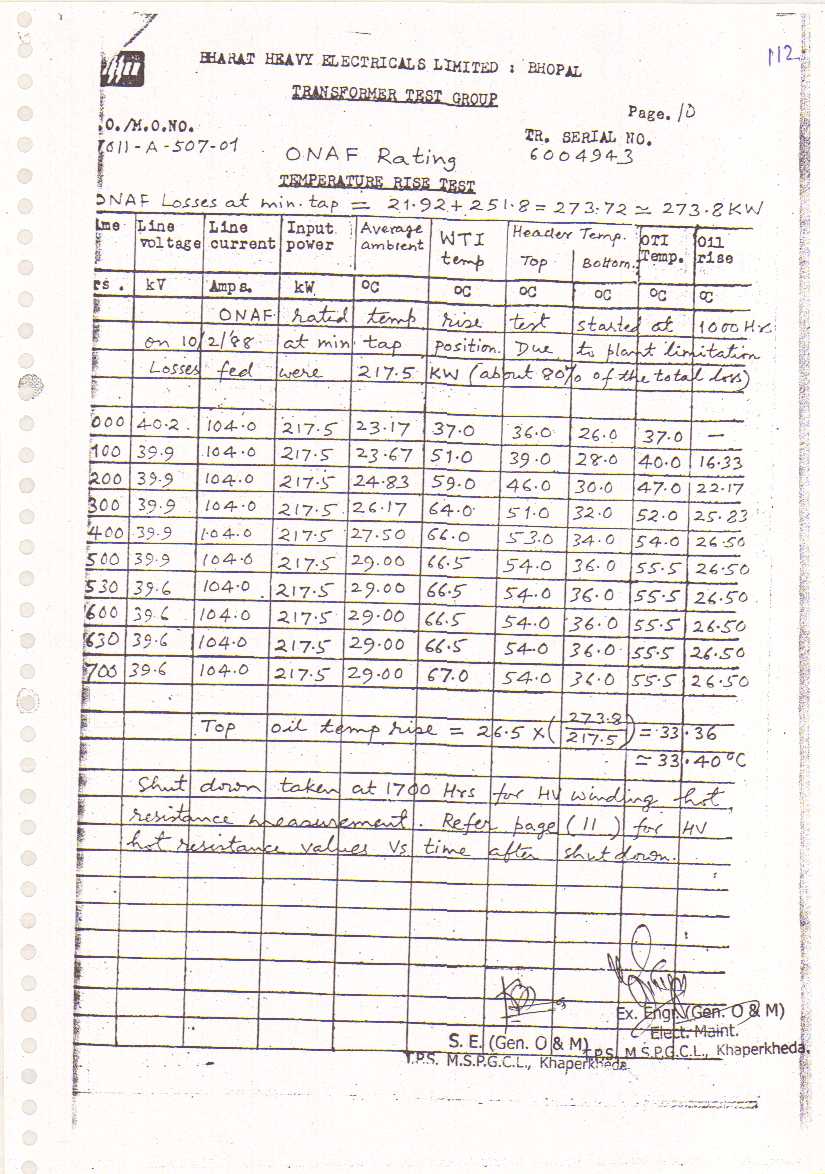 112
BHARAT HEAVY ELECTRICALS LIMITED : BHOPAL
TRANSFORMER TEST GROUP
Page. 10
.O./M.O.NO.
TR. SERIAL NO.
7011-A-507-01
ONAF Rating
6004943
TEMPERATURE RISE TEST
ONAF Losses at min. tap = 21.92 + 251.8 = 273.72 ≃ 273.8 KW
me Line voltage Line current Input power Average ambient WTI temp Header Temp. Top Bottom. OTI Temp. Oil rise
rs. kV Amps. kW °C °C °C °C °C °C
ONAF rated temp rise test started at 1000 Hrs
on 10/2/'88 at min tap position. Due to plant limitation
Losses fed were 217.5 KW (about 80% of the total loss)
000 40.2 104.0 217.5 23.17 37.0 36.0 26.0 37.0 —
100 39.9 104.0 217.5 23.67 51.0 39.0 28.0 40.0 16.33
200 39.9 104.0 217.5 24.83 59.0 46.0 30.0 47.0 22.17
300 39.9 104.0 217.5 26.17 64.0 51.0 32.0 52.0 25.83
400 39.9 104.0 217.5 27.50 66.0 53.0 34.0 54.0 26.50
500 39.9 104.0 217.5 29.00 66.5 54.0 36.0 55.5 26.50
530 39.6 104.0 217.5 29.00 66.5 54.0 36.0 55.5 26.50
600 39.6 104.0 217.5 29.00 66.5 54.0 36.0 55.5 26.50
630 39.6 104.0 217.5 29.00 66.5 54.0 36.0 55.5 26.50
700 39.6 104.0 217.5 29.00 67.0 54.0 36.0 55.5 26.50
Top oil temp rise = 26.5 X (273.8/217.5) = 33.36
≃ 33.40 °C
Shut down taken at 1700 Hrs for HV winding hot
resistance measurement. Refer page (11) for HV
hot resistance values Vs time after shut down.
Ex. Engr. (Gen. O & M)
Elect. Maint.
S. E. (Gen. O & M)
T.P.S. M.S.P.G.C.L., Khaperkheda.
T.P.S. M.S.P.G.C.L., Khaperkheda.